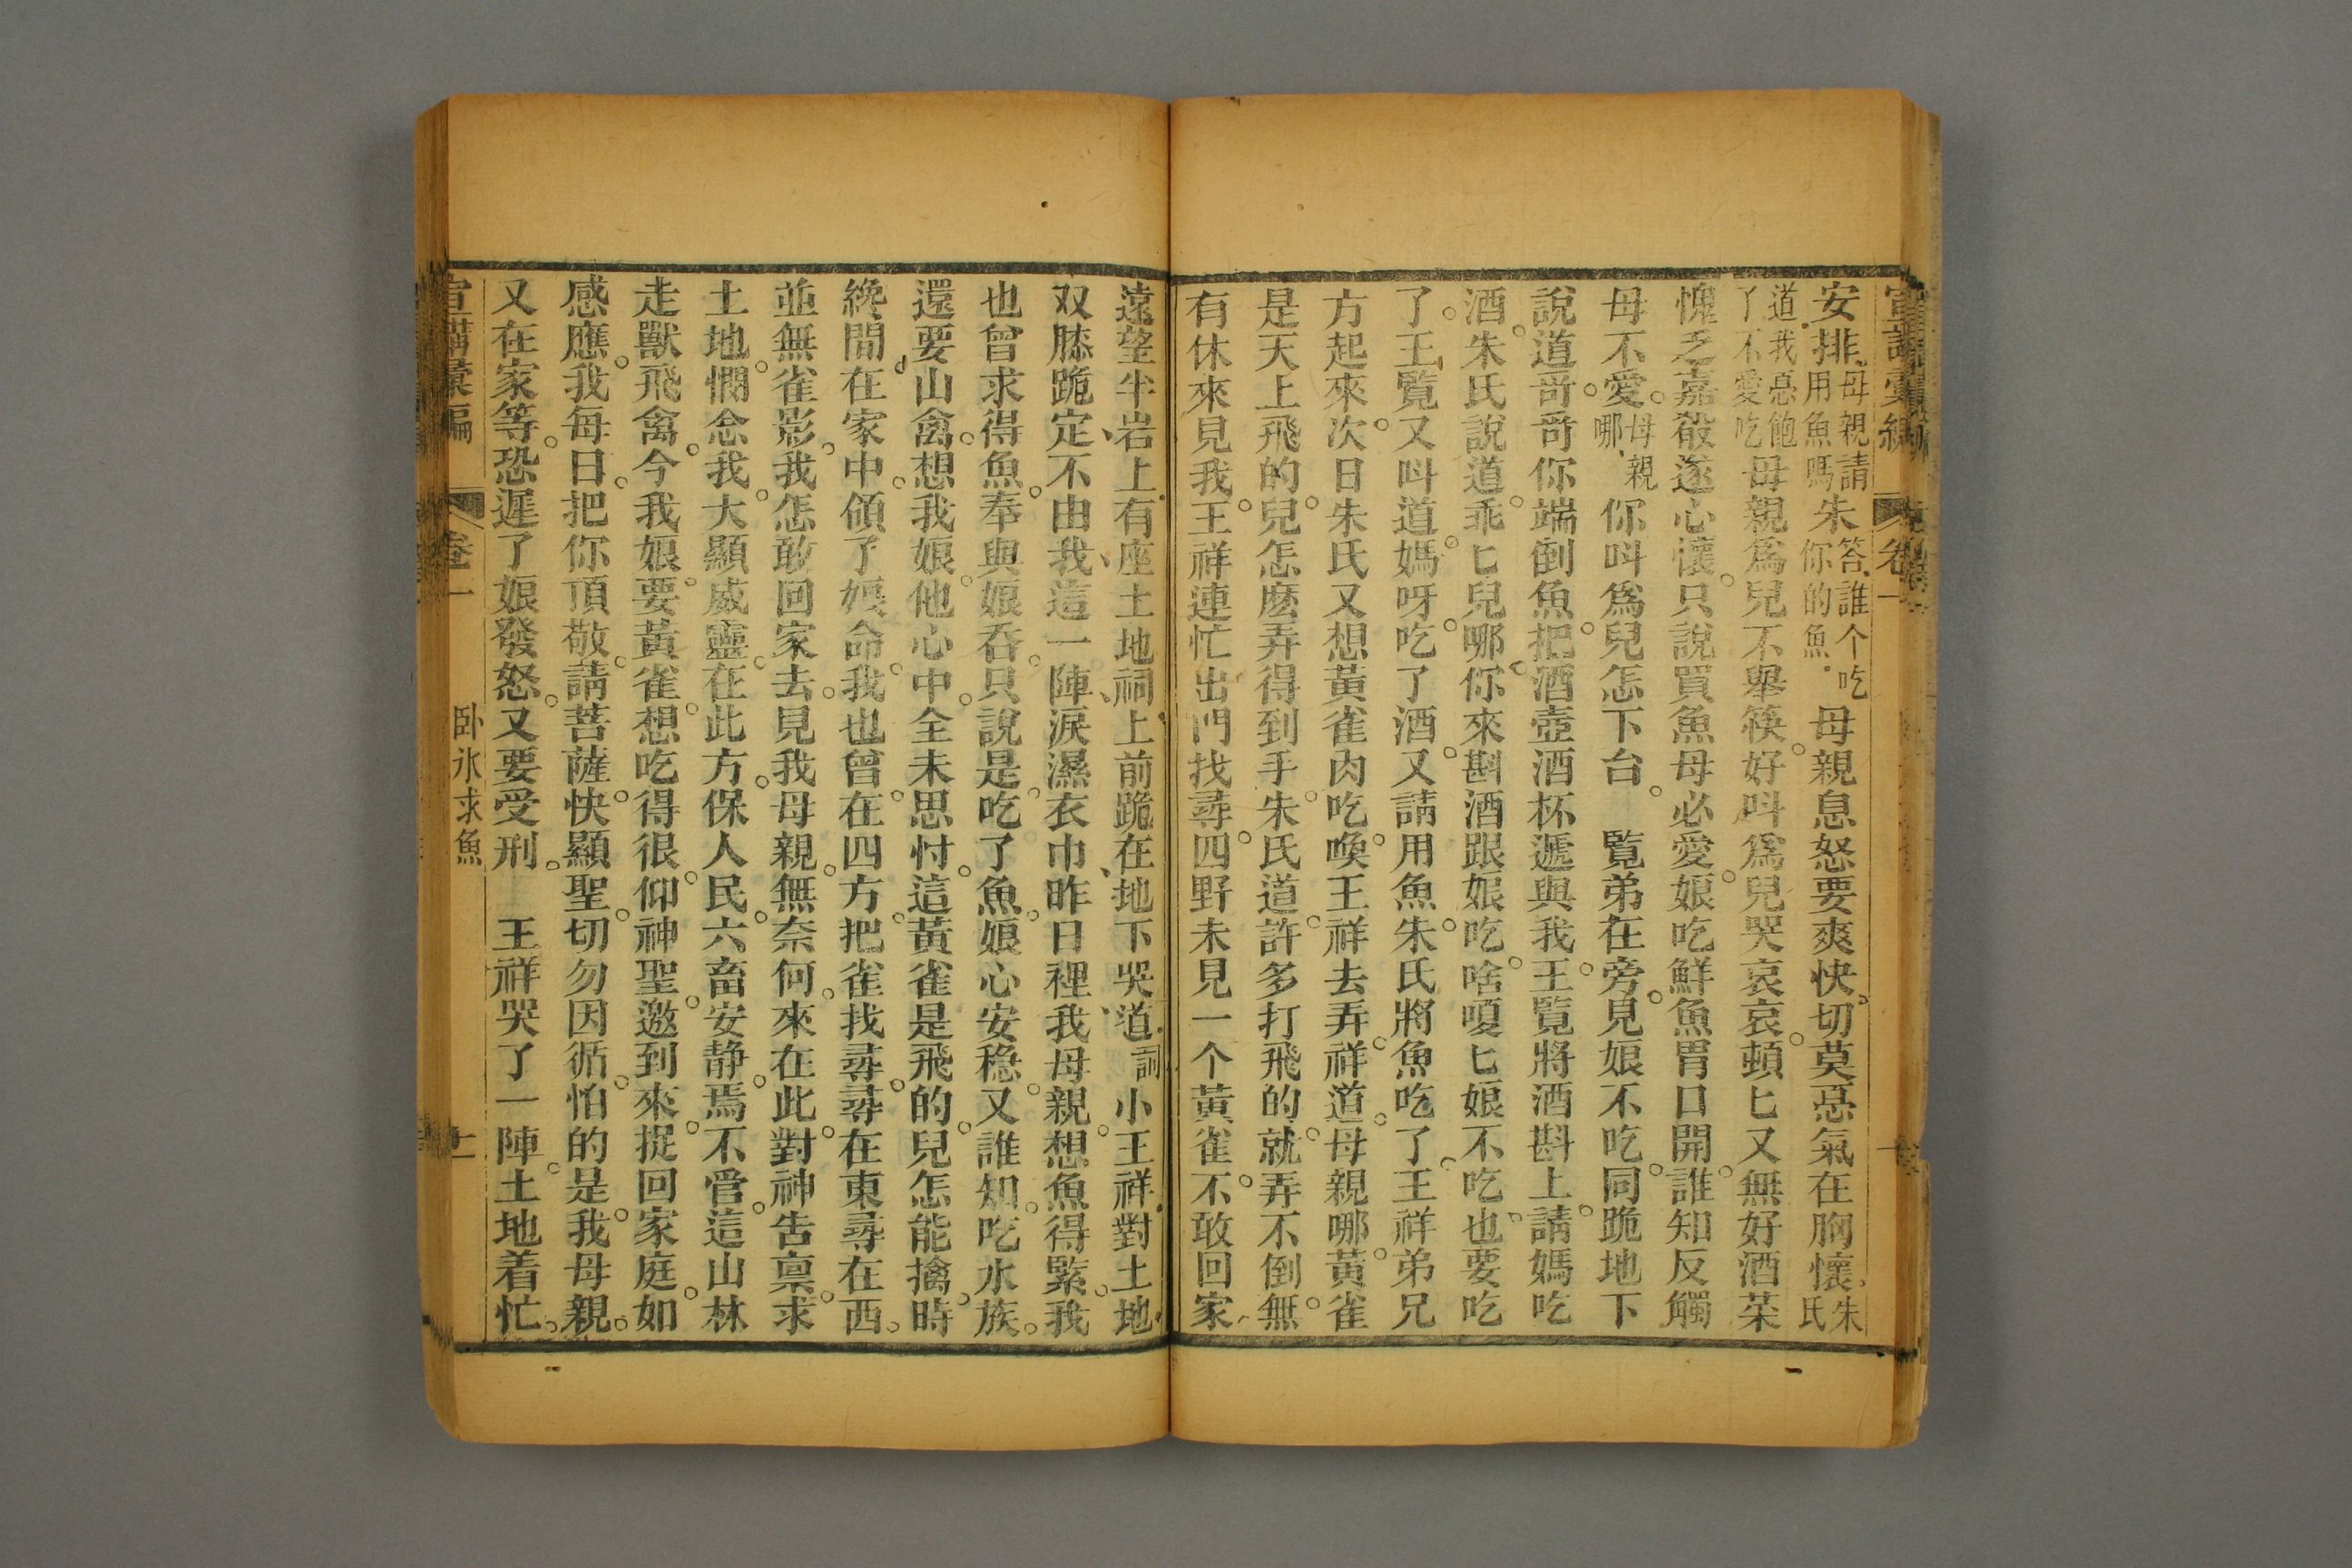 宣講彙編 卷一
安排母親請用魚嗎朱答誰个吃你的魚母親息怒要爽快切莫惡氣在胸懷朱氏
道我惡飽了不愛吃母親爲兒不舉筷好呌爲兒哭哀哀頓匕又無好酒菜
愧乏嘉殽遂心懷只說買魚母必愛娘吃鮮魚胃口開誰知反觸
母不愛母親哪你呌爲兒怎下台 覽弟在旁見娘不吃同跪地下
說道哥哥你端倒魚把酒壺酒杯遞與我王覽將酒斟上請媽吃
酒朱氏說道乖匕兒哪你來斟酒跟娘吃啥嗄匕娘不吃也要吃
了王覽又呌道媽呀吃了酒又請用魚朱氏將魚吃了王祥弟兄
方起來次日朱氏又想黃雀肉吃喚王祥去弄祥道母親哪黃雀
是天上飛的兒怎麽弄得到手朱氏道許多打飛的就弄不倒無
有休來見我王祥連忙出門找尋四野未見一个黃雀不敢回家
遠望半岩上有座土地祠上前跪在地下哭道詞小王祥對土地
双膝跪定不由我這一陣淚濕衣巾昨日裡我母親想魚得緊我
也曾求得魚奉與娘吞只說是吃了魚娘心安穩又誰知吃水族
還要山禽想我娘他心中全未思忖這黃雀是飛的兒怎能擒時
纔間在家中領了娘命我也曾在四方把雀找尋尋在東尋在西
並無雀影我怎敢回家去見我母親無奈何來在此對神告禀求
土地憫念我大顯威靈在此方保人民六畜安静焉不管這山林
走獸飛禽今我娘要黃雀想吃得很仰神聖邀到來捉回家庭如
感應我每日把你頂敬請菩薩快顯聖切勿因循怕的是我母親
又在家等恐遲了娘發怒又要受刑 王祥哭了一陣土地着忙
宣講彙編 卷一 卧氷求魚 十一